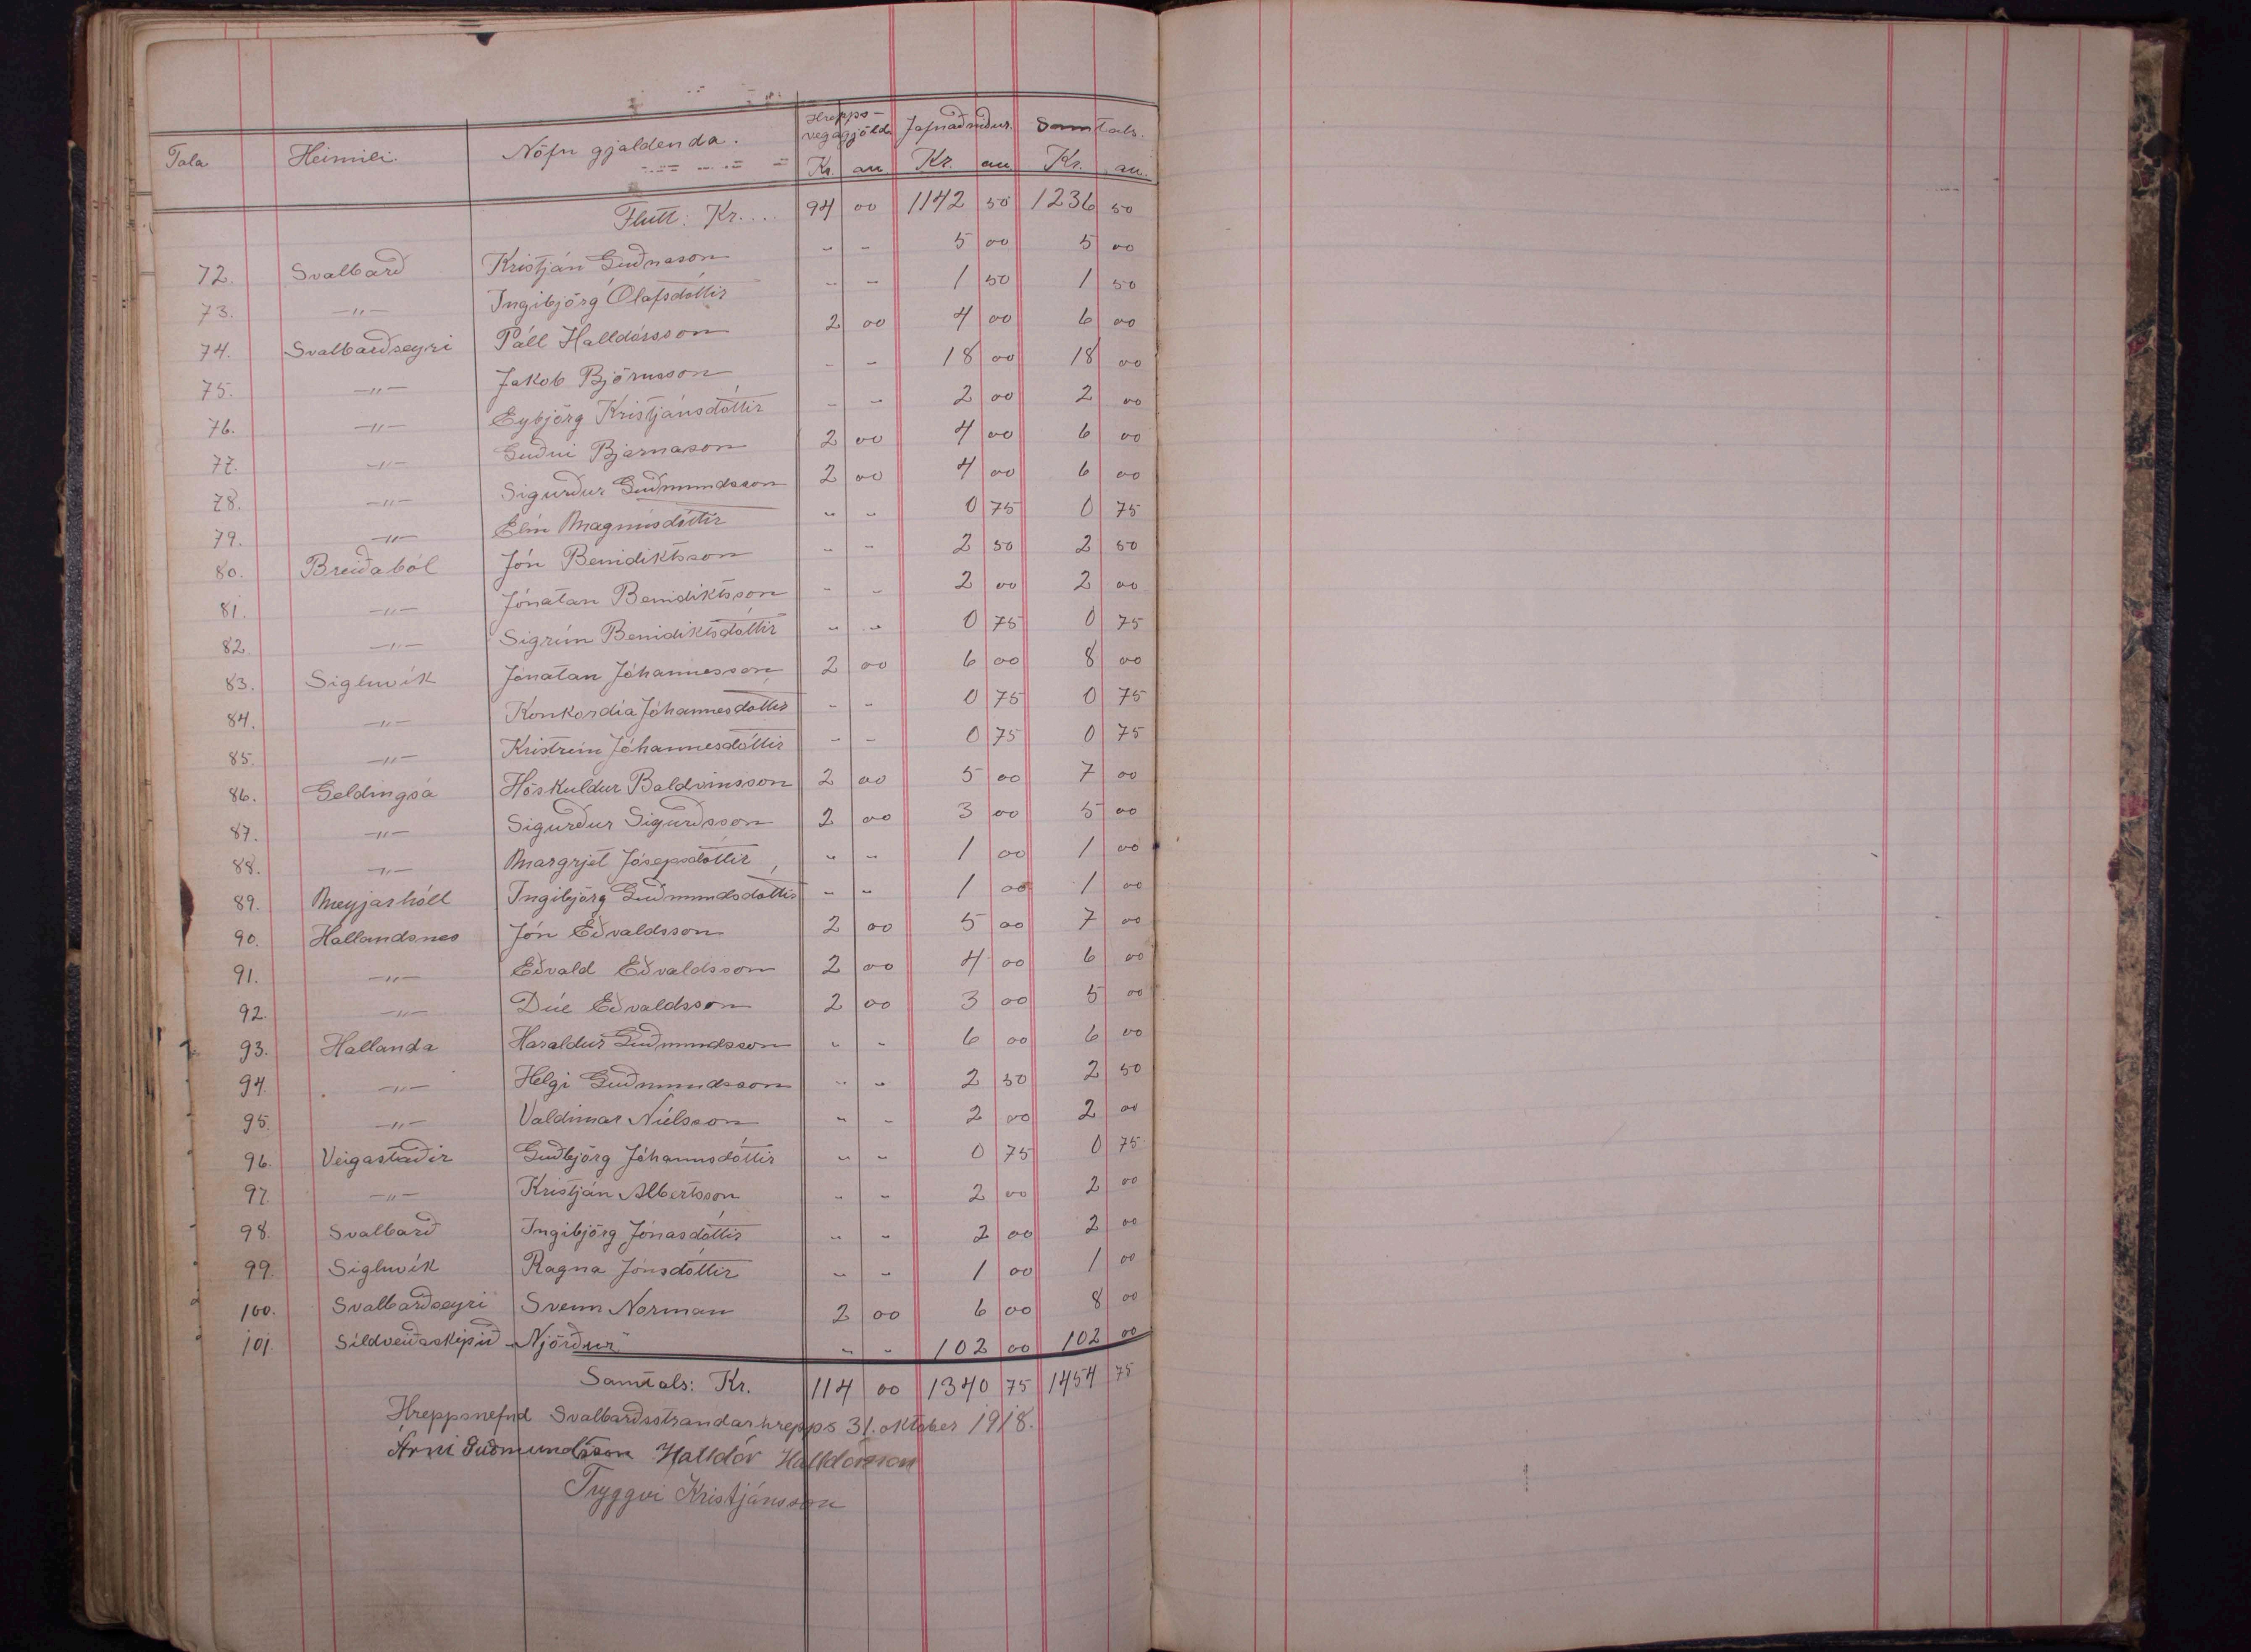 Hrepps-
vegagjöld Jafnaðniður. Samtals.
Tala Heimili Nöfn gjaldenda.
Kr. au Kr. au Kr. au.
Flutt: Kr.... 94 00 1142 50 1236 50
72. Svalbarð Kristján Guðnason " " 5 00 5 00
73. —"— Ingibjörg Ólafsdóttir " " 1 50 1 50
74. Svalbarðseyri Páll Halldórsson 2 00 4 00 6 00
75. —"— Jakob Björnsson " " 18 00 18 00
76. —"— Eybjörg Kristjánsdóttir " " 2 00 2 00
77. —"— Guðni Bjarnason 2 00 4 00 6 00
78. —"— Sigurður Guðmundsson 2 00 4 00 6 00
79. —"— Elín Magnúsdóttir " " 0 75 0 75
80. Breiðaból Jón Benidiktsson " " 2 50 2 50
81. —"— Jónatan Benidiktsson " " 2 00 2 00
82. —"— Sigrún Benidiktsdóttir " " 0 75 0 75
83. Sigluvík Jónatan Jóhannesson 2 00 6 00 8 00
84. —"— Konkordía Jóhannesdóttir " " 0 75 0 75
85. —"— Kristrún Jóhannesdóttir " " 0 75 0 75
86. Geldingsá Höskuldur Baldvinsson 2 00 5 00 7 00
87. —"— Sigurður Sigurðsson 2 00 3 00 5 00
88. —"— Margrjet Jósepsdóttir " " 1 00 1 00
89. Meyjarhóll Ingibjörg Guðmundsdóttir " " 1 00 1 00
90. Hallandsnes Jón Eðvaldsson 2 00 5 00 7 00
91. —"— Eðvald Eðvaldsson 2 00 4 00 6 00
92. —"— Dúe Eðvaldsson 2 00 3 00 5 00
93. Hallanda Haraldur Guðmundsson " " 6 00 6 00
94. —"— Helgi Guðmundsson " " 2 50 2 50
95. —"— Valdimar Níelsson " " 2 00 2 00
96. Veigastaðir Guðbjörg Jóhannsdóttir " " 0 75 0 75
97. —"— Kristján Albertsson " " 2 00 2 00
98. Svalbarð Ingibjörg Jónasdóttir " " 2 00 2 00
99. Sigluvík Ragna Jónsdóttir " " 1 00 1 00
100. Svalbarðseyri Svenn Norman 2 00 6 00 8 00
101. Síldveiðaskipið „Njörður" " " 102 00 102 00
Samtals: Kr. 114 00 1340 75 1454 75
Hreppsnefnd Svalbarðsstrandarhrepps 31. október 1918.
Árni Guðmundsson Halldór Halldórsson
Tryggvi Kristjánsson